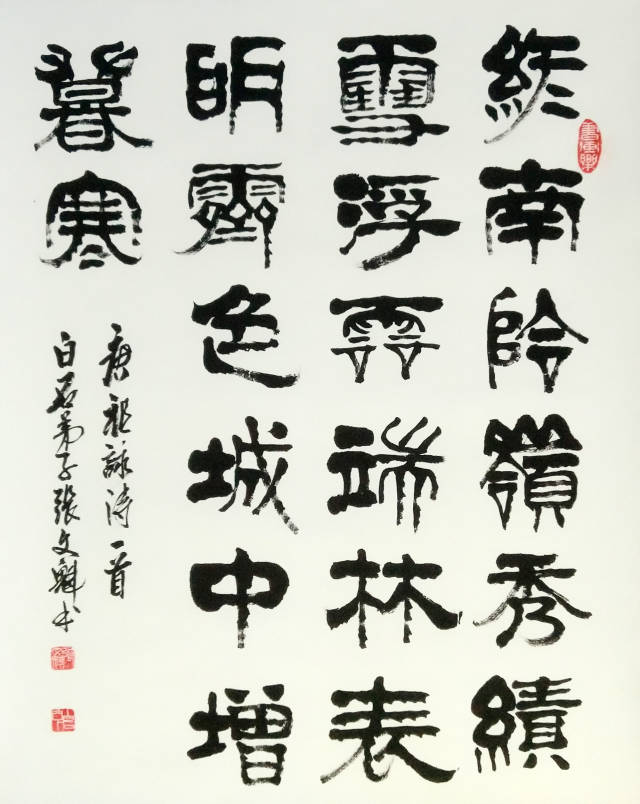 終南陰嶺秀績
雪浮雲端林表
明霽色城中增
暮寒
唐祖詠詩一首
白石弟子張文魁书